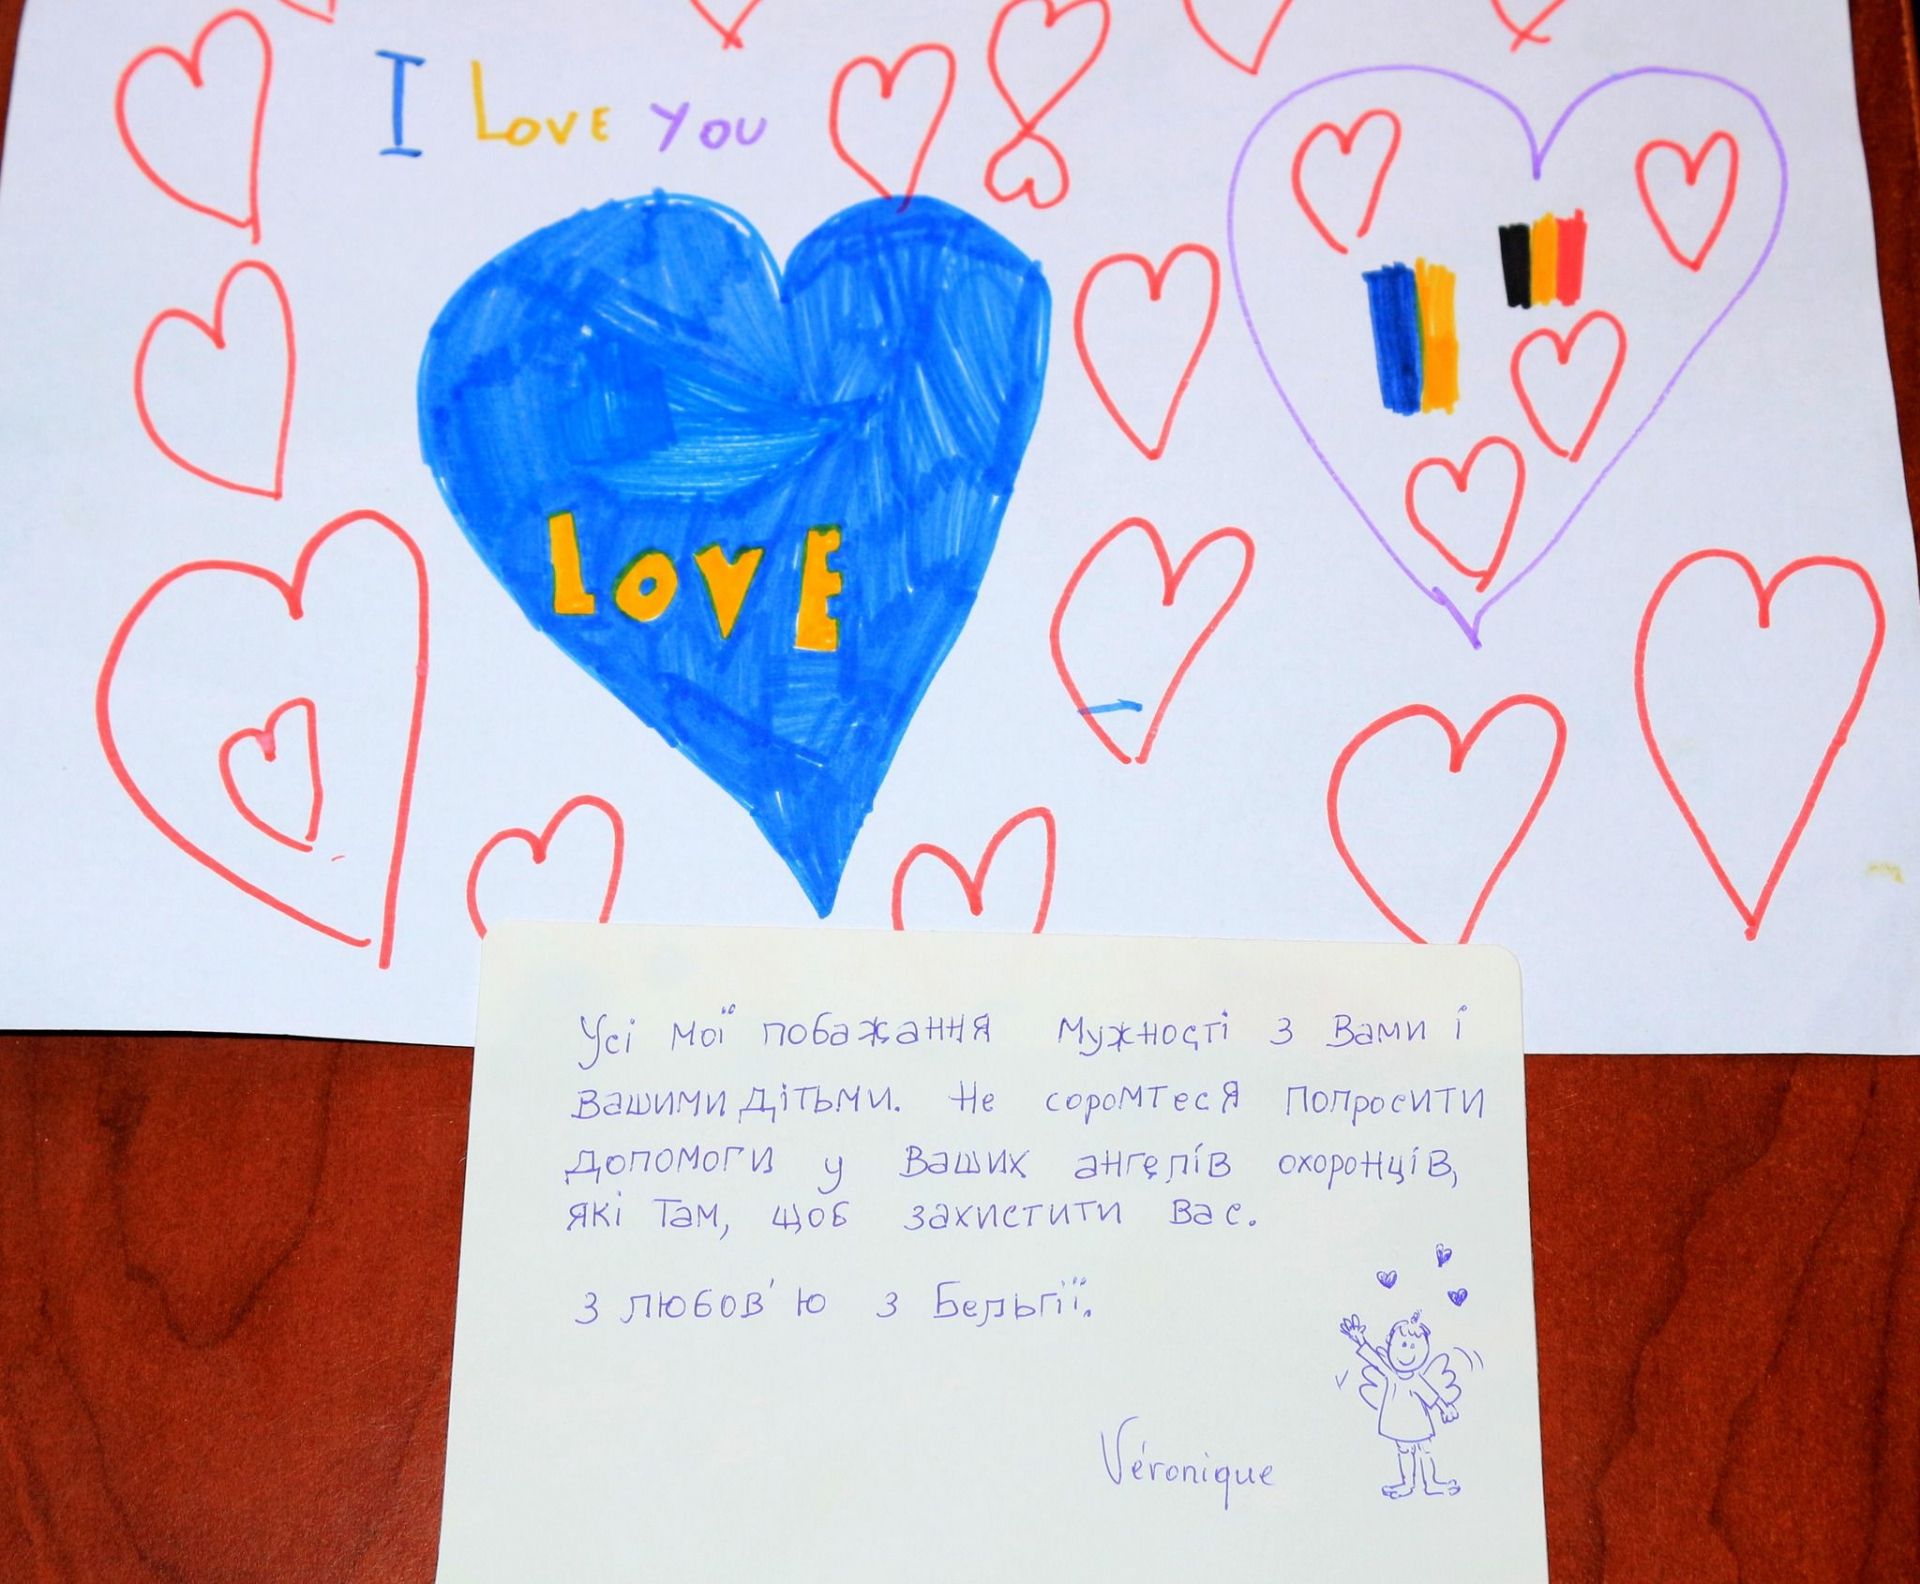 I Love you
LOVE
Усі мої побажання мужності з Вами і
Вашими дітьми. Не соромтеся попросити
допомоги у Ваших ангелів охоронців,
які там, щоб захистити Вас.
З любов'ю з Бельгії.
Véronique